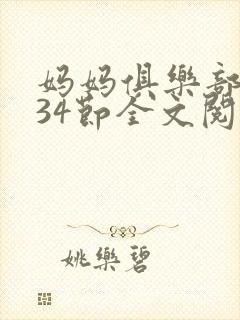 妈妈俱樂部
34節全文閱
姚樂碧